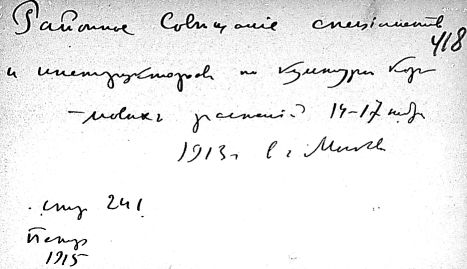 Районное Совищаніе спеціалистов
418
и инструкторов по культуре кор-
-мовых растеній 14-17 нояб
1913 г в г Минске
стр 241
Петр
1915